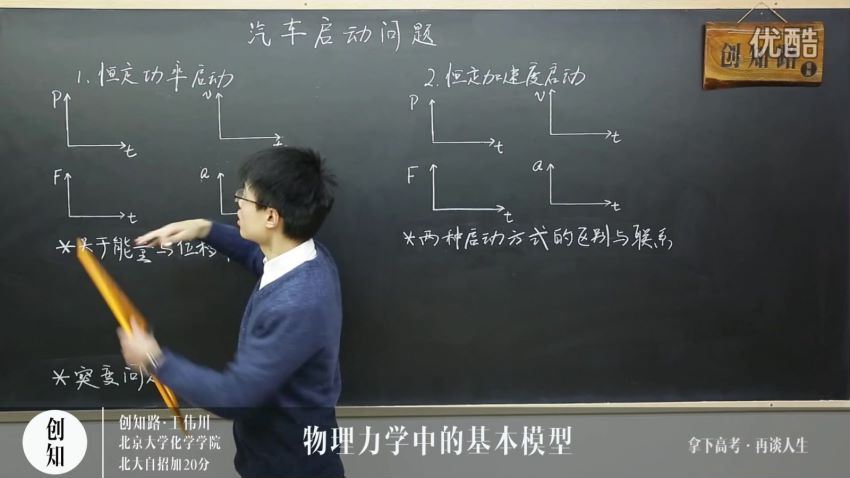 汽车启动问题
优酷
创知路
1.恒定功率启动
P
t
v
t
F
t
a
*关于能量与位移
*突变问
2.恒定加速度启动
P
t
v
t
F
t
a
t
*两种启动方式的区别与联系
创知
创知路·丁伟川
北京大学化学学院
北大自招加20分
物理力学中的基本模型
拿下高考·再谈人生